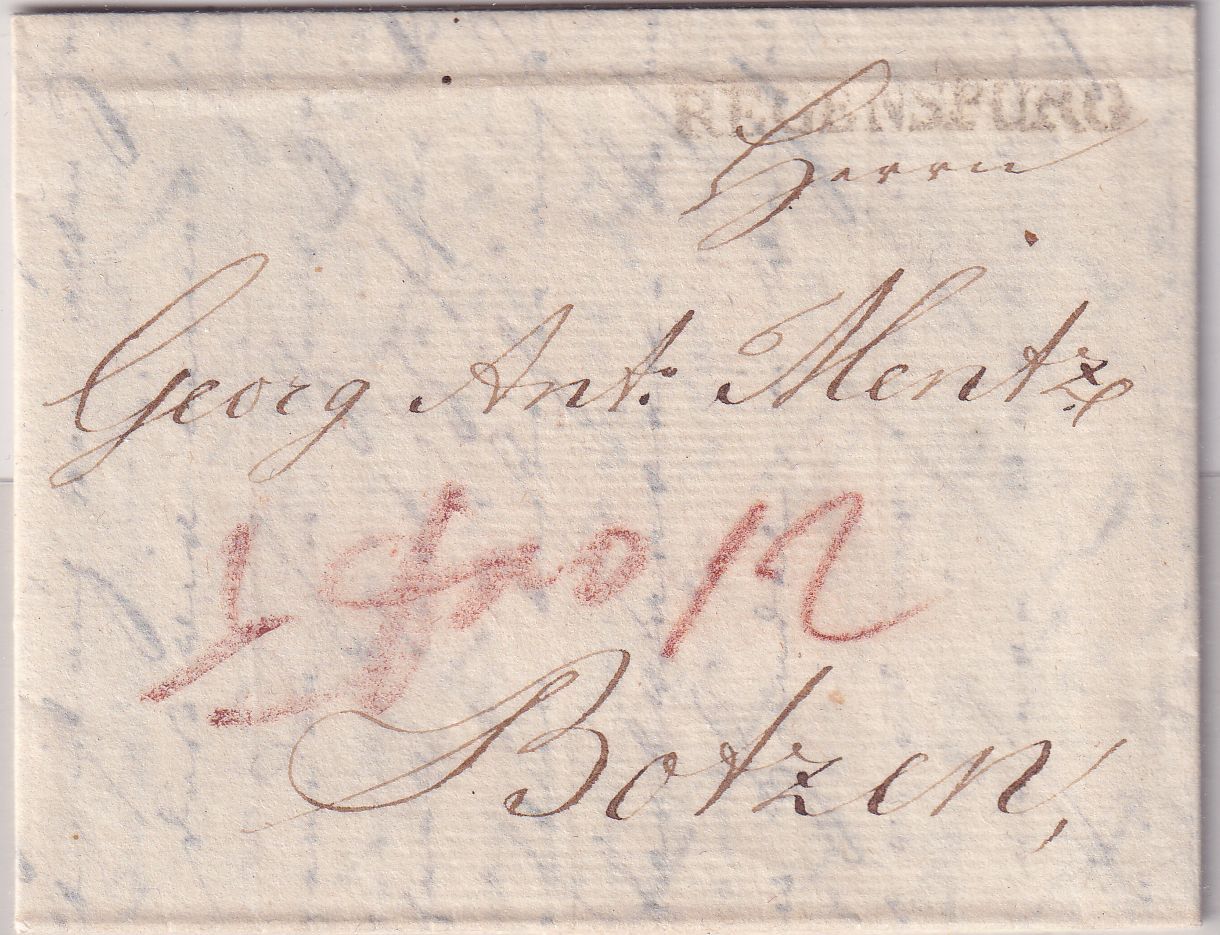 REGENSPURG
Herrn
Georg Ant: Mentz
fro 12
Botzen,